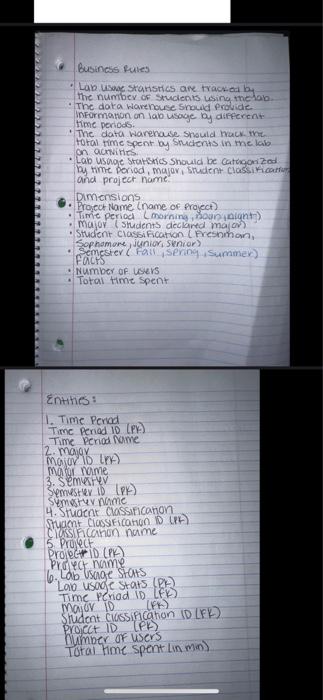 Business Rules
• Lab usage statistics are tracked by
the number of students using the lab.
• The data warehouse should provide
information on lab usage by different
time periods.
• The data warehouse should track the
total time spent by students in the lab
on activities.
• Lab usage statistics should be catagorized
by time period, major, student classification
and project name.
Dimensions
• Project Name (name of Project)
• Time period (morning, noon, night)
• Major (students declared major)
• Student Classification (Freshman,
Sophomore, junior, senior)
• Semester (Fall, Spring, Summer)
Facts
• Number of users
• Total time spent
Entities:
1. Time Period
Time Period ID (PK)
Time Period Name
2. Major
Major ID (PK)
Major name
3. Semester
Semester ID (PK)
Semester name
4. Student Classification
Student Classification ID (PK)
Classification name
5. Project
Project ID (PK)
Project name
6. Lab Usage Stats
Lab usage Stats (PK)
Time Period ID (FK)
Major ID (FK)
Student Classification ID (FK)
Project ID (FK)
Number of users
Total time spent (in min)